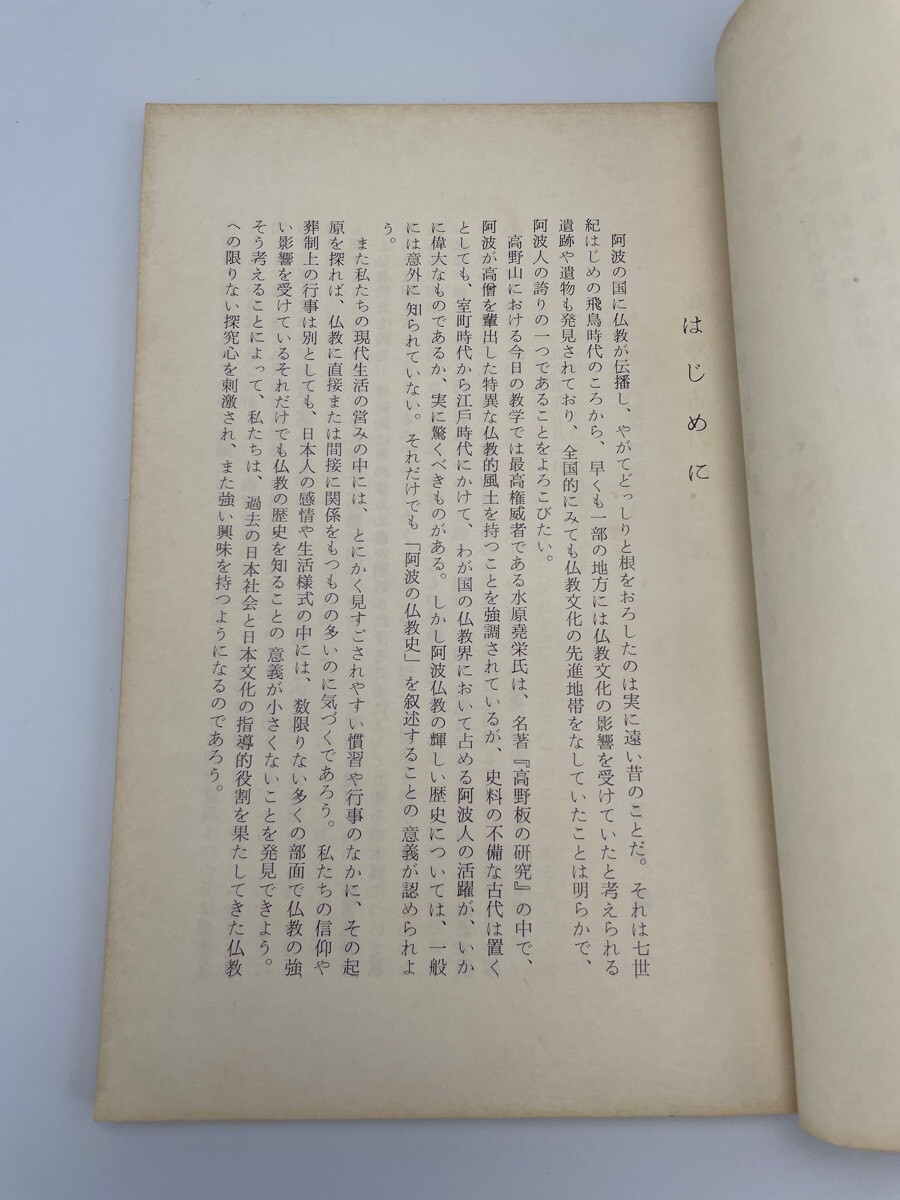 はじめに
阿波の国に仏教が伝播し、やがてどっしりと根をおろしたのは実に遠い昔のことだ。それは七世
紀はじめの飛鳥時代のころから、早くも一部の地方には仏教文化の影響を受けていたと考えられる
遺跡や遺物も発見されており、全国的にみても仏教文化の先進地帯をなしていたことは明らかで、
阿波人の誇りの一つであることをよろこびたい。
高野山における今日の教学では最高権威者である水原堯栄氏は、名著『高野板の研究』の中で、
阿波が高僧を輩出した特異な仏教的風土を持つことを強調されているが、史料の不備な古代は置く
としても、室町時代から江戸時代にかけて、わが国の仏教界において占める阿波人の活躍が、いか
に偉大なものであるか、実に驚くべきものがある。しかし阿波仏教の輝しい歴史については、一般
には意外に知られていない。それだけでも「阿波の仏教史」を叙述することの意義が認められよ
う。
また私たちの現代生活の営みの中には、とにかく見すごされやすい慣習や行事のなかに、その起
原を探れば、仏教に直接または間接に関係をもつものの多いのに気づくであろう。私たちの信仰や
葬制上の行事は別としても、日本人の感情や生活様式の中には、数限りない多くの部面で仏教の強
い影響を受けているそれだけでも仏教の歴史を知ることの意義が小さくないことを発見できよう。
そう考えることによって、私たちは、過去の日本社会と日本文化の指導的役割を果たしてきた仏教
への限りない探究心を刺激され、また強い興味を持つようになるのであろう。